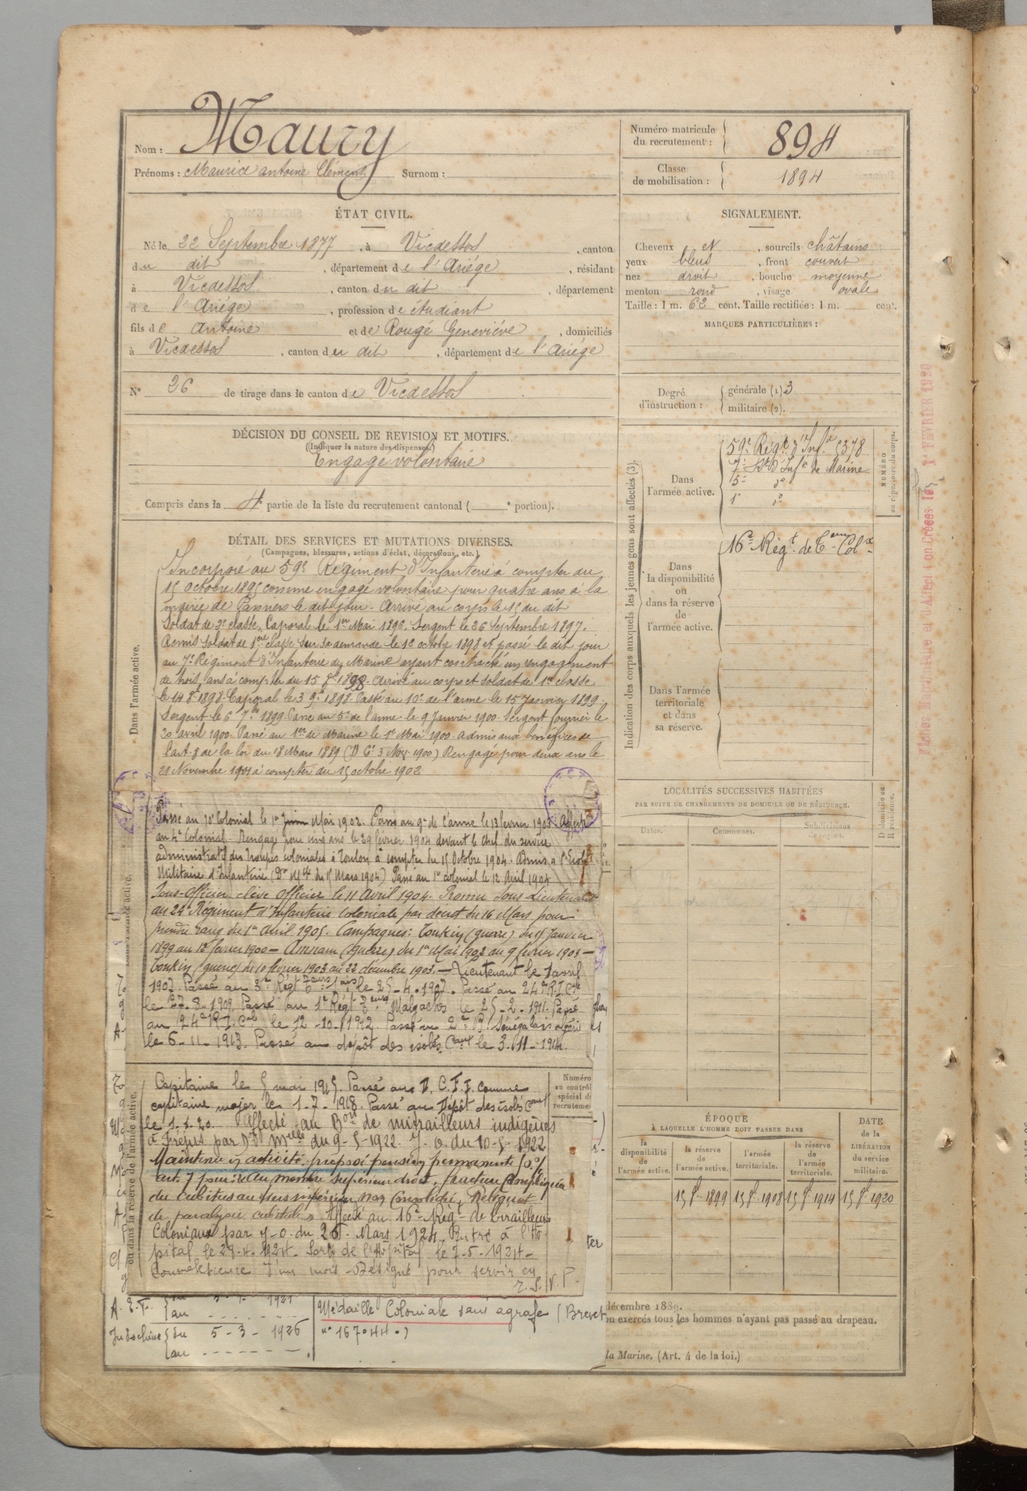 Nom : Maury
Prénoms : Maurice antoine Clément Surnom :
Numéro matricule du recrutement : 894
Classe de mobilisation : 1894
ÉTAT CIVIL.
Né le 22 Septembre 1877, à Vicdessos, canton
du dit, département de l'Ariége, résidant
à Vicdessos, canton du dit, département
de l'Ariége, profession de étudiant
fils de Antoine et de Rouge Geneviéve, domiciliés
à Vicdessos, canton du dit, département de l'Ariége
N° 26 de tirage dans le canton de Vicdessos
DÉCISION DU CONSEIL DE REVISION ET MOTIFS.
(Indiquer la nature des dispenses.)
Engagé volontaire
Compris dans la 4e partie de la liste du recrutement cantonal ( e portion).
SIGNALEMENT.
Cheveux et, sourcils châtains
yeux bleus, front couvert
nez droit, bouche moyenne
menton rond, visage ovale
Taille : 1 m. 62 cent. Taille rectifiée : 1 m. cent.
MARQUES PARTICULIÈRES :
Degré d'instruction : générale (1) 3
militaire (2).
Indication des corps auxquels les jeunes gens sont affectés (3).
Dans l'armée active.
59e Régt d'Infie 5378
7e Rt d'Infie de Marine
15e do
1er do
NUMÉRO
Dans la disponibilité ou dans la réserve de l'armée active.
16e Régt de Ceurs Colx
Dans l'armée territoriale et dans sa réserve.
DÉTAIL DES SERVICES ET MUTATIONS DIVERSES.
(Campagnes, blessures, actions d'éclat, décorations, etc.)
Dans l'armée active.
Incorporé au 59e Régiment d'Infanterie à compter du
15 octobre 1895 comme engagé volontaire pour quatre ans à la
mairie de Pamiers le dit jour. Arrivé au corps le 15 du dit
Soldat de 2e classe, Caporal le 1er Mai 1896. Sergent le 26 Septembre 1897.
Remis soldat de 1ere classe sur sa demande le 12 octobre 1898 et passé le dit jour
au 7e Régiment d'Infanterie de Marine ayant contracté un rengagement
de trois ans à compter du 15 8bre 1898. Arrivé au corps et soldat de 1e classe
le 14 8bre 1898. Caporal le 3 9bre 1898. Passé au 10e de l'arme le 15 Janvier 1899.
Sergent le 6 7bre 1899. Passé au 5e de l'arme le 9 Janvier 1900. Sergent fourrier le
20 avril 1900. Passé au 1er de Marine le 1er Mai 1900. Admis aux bénéfices de
l'art 8 de la loi du 18 Mars 1889 (D. Ce 3 Nov 1900) Rengagé pour deux ans le
21 Novembre 1901 à compter du 15 octobre 1902
Passé au 10e Colonial le 1er Mai 1902. Passé au 9e de l'arme le 13 février 1903. Affecté
au 4e Colonial. Rengagé pour cinq ans le 29 février 1904 devant le chef du service
administratif des troupes coloniales à Toulon à compter du 15 Octobre 1904. Admis à l'Ecole
Militaire d'Infanterie (Don Mlle du 15 Mars 1904) Passé au 1er colonial le 12 Avril 1904
Sous-officier élève officier le 11 Avril 1904. Promu Sous Lieutenant
au 24e Régiment d'Infanterie coloniale par décret du 16 Mars pour
prendre rang du 1er avril 1905. Campagnes: Tonkin (guerre) du 15 Janvier
1899 au 12 février 1900 — Annam (guerre) du 1er Mai 1902 au 9 février 1903 —
Tonkin (guerre) de 10 février 1903 au 22 décembre 1903. — Lieutenant le 1er avril
1907. Passé au 3e Régt le 25-4-1907. Passé au 24e R.I. Cle
le 27-8-1909. Passé au 1er Régt Malgaches le 25-2-1911. Passé
au 24e R.I. Cal le 12-10-1912. Passé au 2e Sénégalais
le 6-11-1913. Passé au dépôt des isolés Caux le 3-11-1914.
ou dans la réserve de l'armée active.
Capitaine le 5 mai 1915. Passé au D.C.F.I. comme
capitaine major le 1-7-1918. Passé au Dépôt des isolés Caux
le 1-1-20. Affecté au Bon de mitrailleurs indigènes
à Fréjus par Don Mlle du 9-5-1922 J. o. du 10-5-1922
Maintenu en activité, proposé pension permanente 10%
raideur du membre supérieur droit, fracture compliquée
du cubitus au tiers supérieur. Reliquat
de paralysie cubitale. Affecté au 16e Régt de tirailleurs
Coloniaux par J-o. du 26 Mars 1924. Entré à l'Hô-
pital le 29-4-1924. Sorti de l'Hôpital le 7-5-1924 -
Convalescence d'un mois - Désigné pour servir en
Numéro
au contrôle
spécial du
recrutement
Indochine du 5-3-1926
au
Médaille Coloniale sans agrafe (Brevet
n° 167044.)
LOCALITÉS SUCCESSIVES HABITÉES
PAR SUITE DE CHANGEMENTS DE DOMICILE OU DE RÉSIDENCE.
Dates. Communes. Subdivisions
D. Domicile ou R. résidence.
ÉPOQUE
À LAQUELLE L'HOMME DOIT PASSER DANS
DATE de la LIBÉRATION du service militaire.
la disponibilité de l'armée active.
la réserve de l'armée active. 15 8bre 1899
l'armée territoriale. 15 8bre 1908
la réserve de l'armée territoriale. 15 8bre 1914
15 8bre 1920
décembre 1889.
exercés tous les hommes n'ayant pas passé au drapeau.
la Marine. (Art. 4 de la loi.)